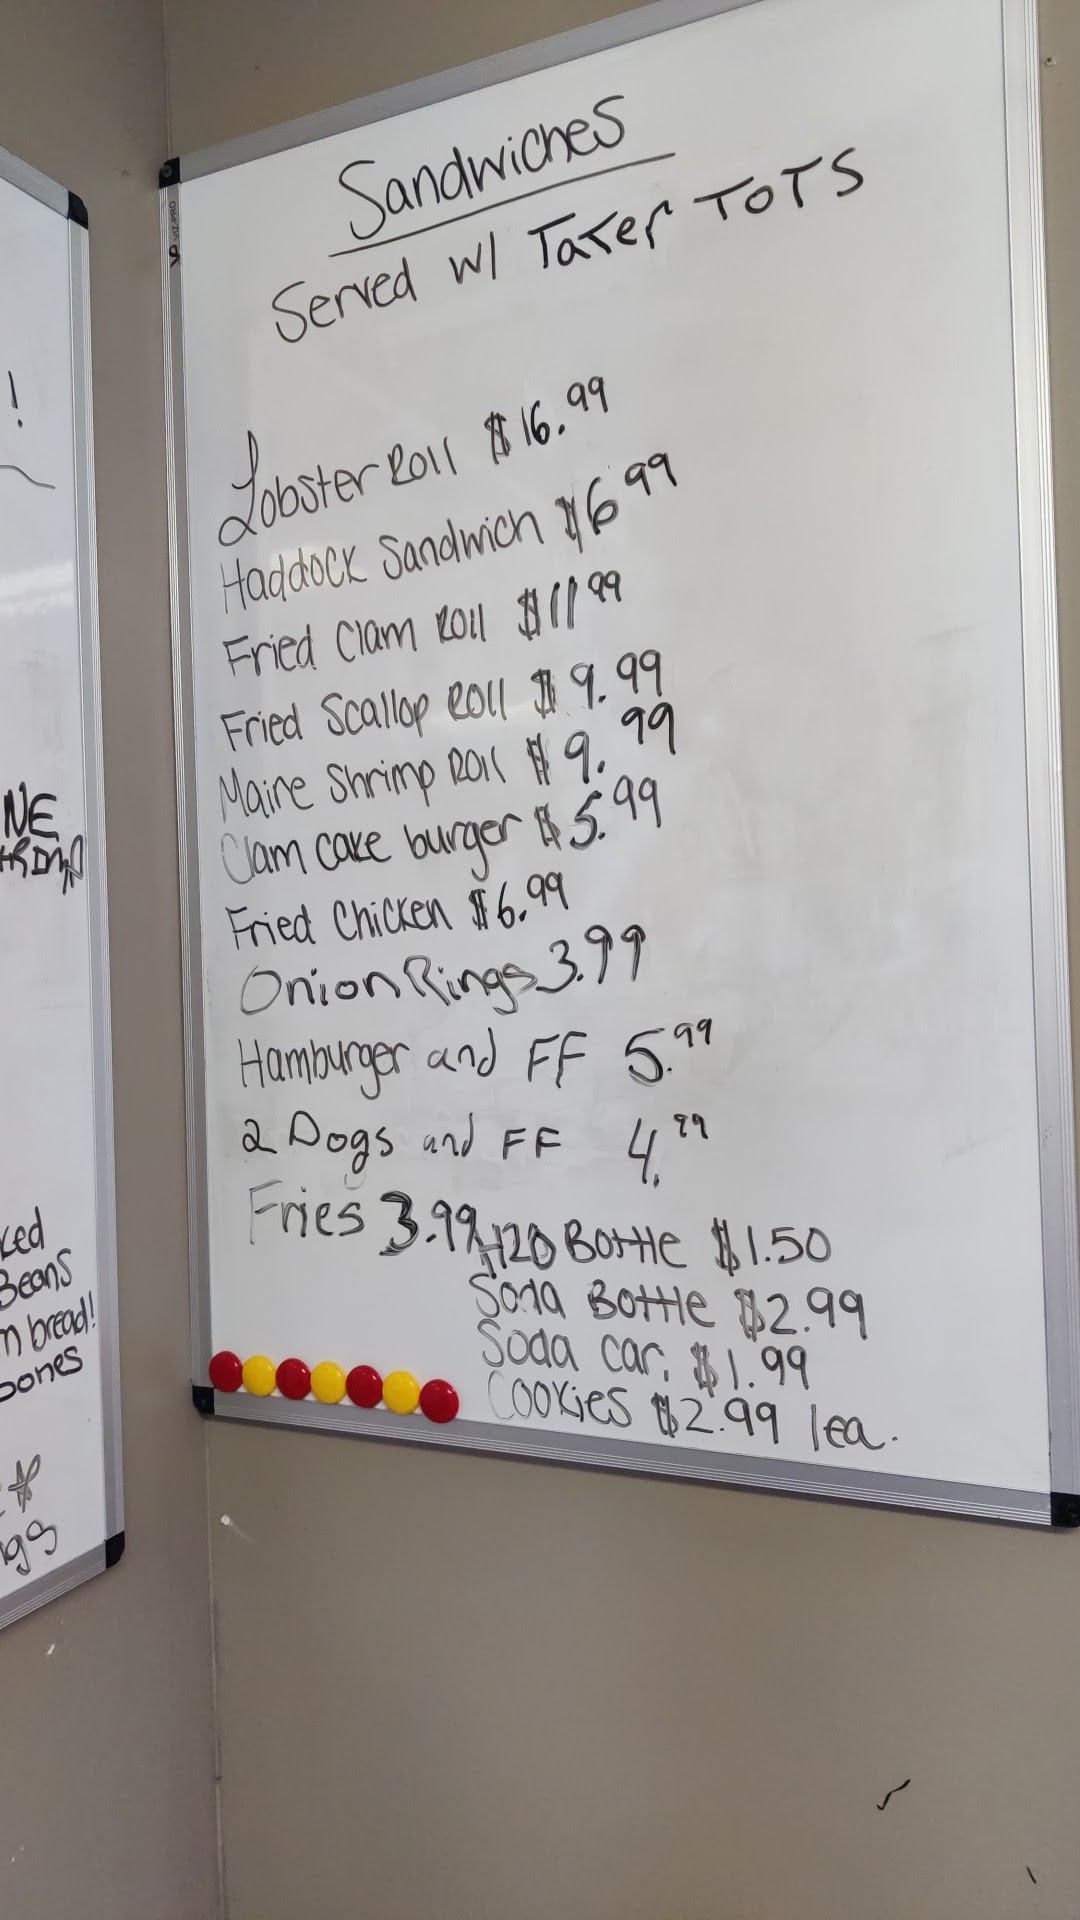 Sandwiches
Served w/ Tater TOTS
Lobster Roll $16.99
Haddock Sandwich $6.99
Fried Clam Roll $11.99
Fried Scallop Roll $9.99
Maine Shrimp Roll $9.99
Clam cake burger $5.99
Fried Chicken $6.99
Onion Rings 3.99
Hamburger and FF 5.99
2 Dogs and FF 4.99
Fries 3.99
H20 Bottle $1.50
Soda Bottle $2.99
Soda can $1.99
Cookies $2.99 1ea.
VIZ-PRO
!
NE
ked
Beans
n bread!
bones
gs